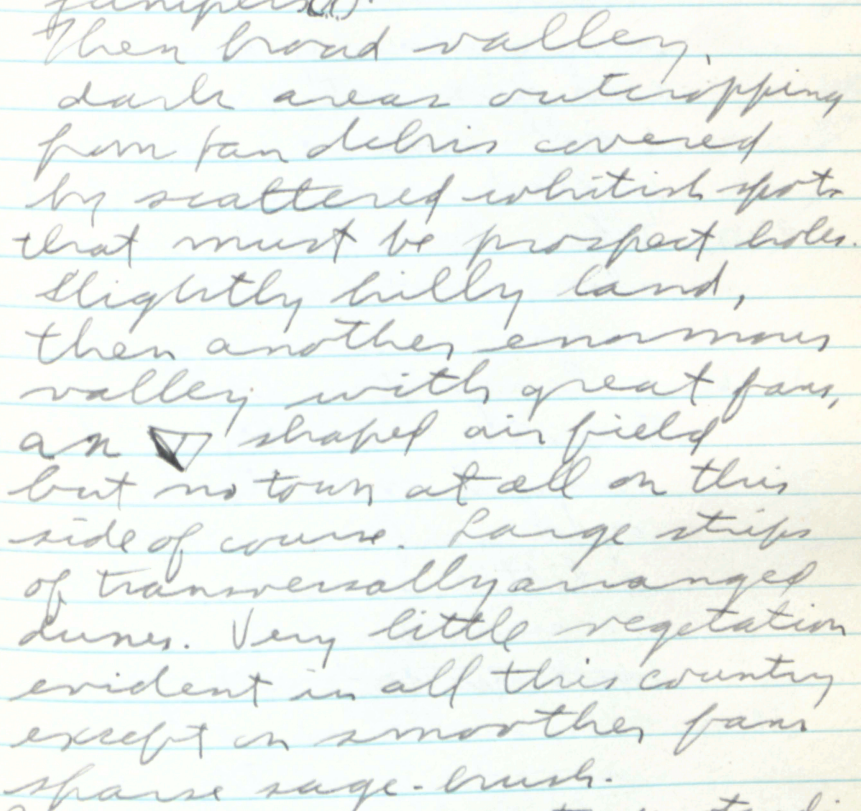 junipers(?).
Then broad valley,
dark areas outcropping
from fan debris covered
by scattered whitish spots
that must be prospect holes.
Slightly hilly land,
then another enormous
valley with great fans,
an ▽ shaped air field
but no town at all on this
side of course. Large strips
of transversally arranged
dunes. Very little vegetation
evident in all this country
except on smoother fans
sparse sage-brush.